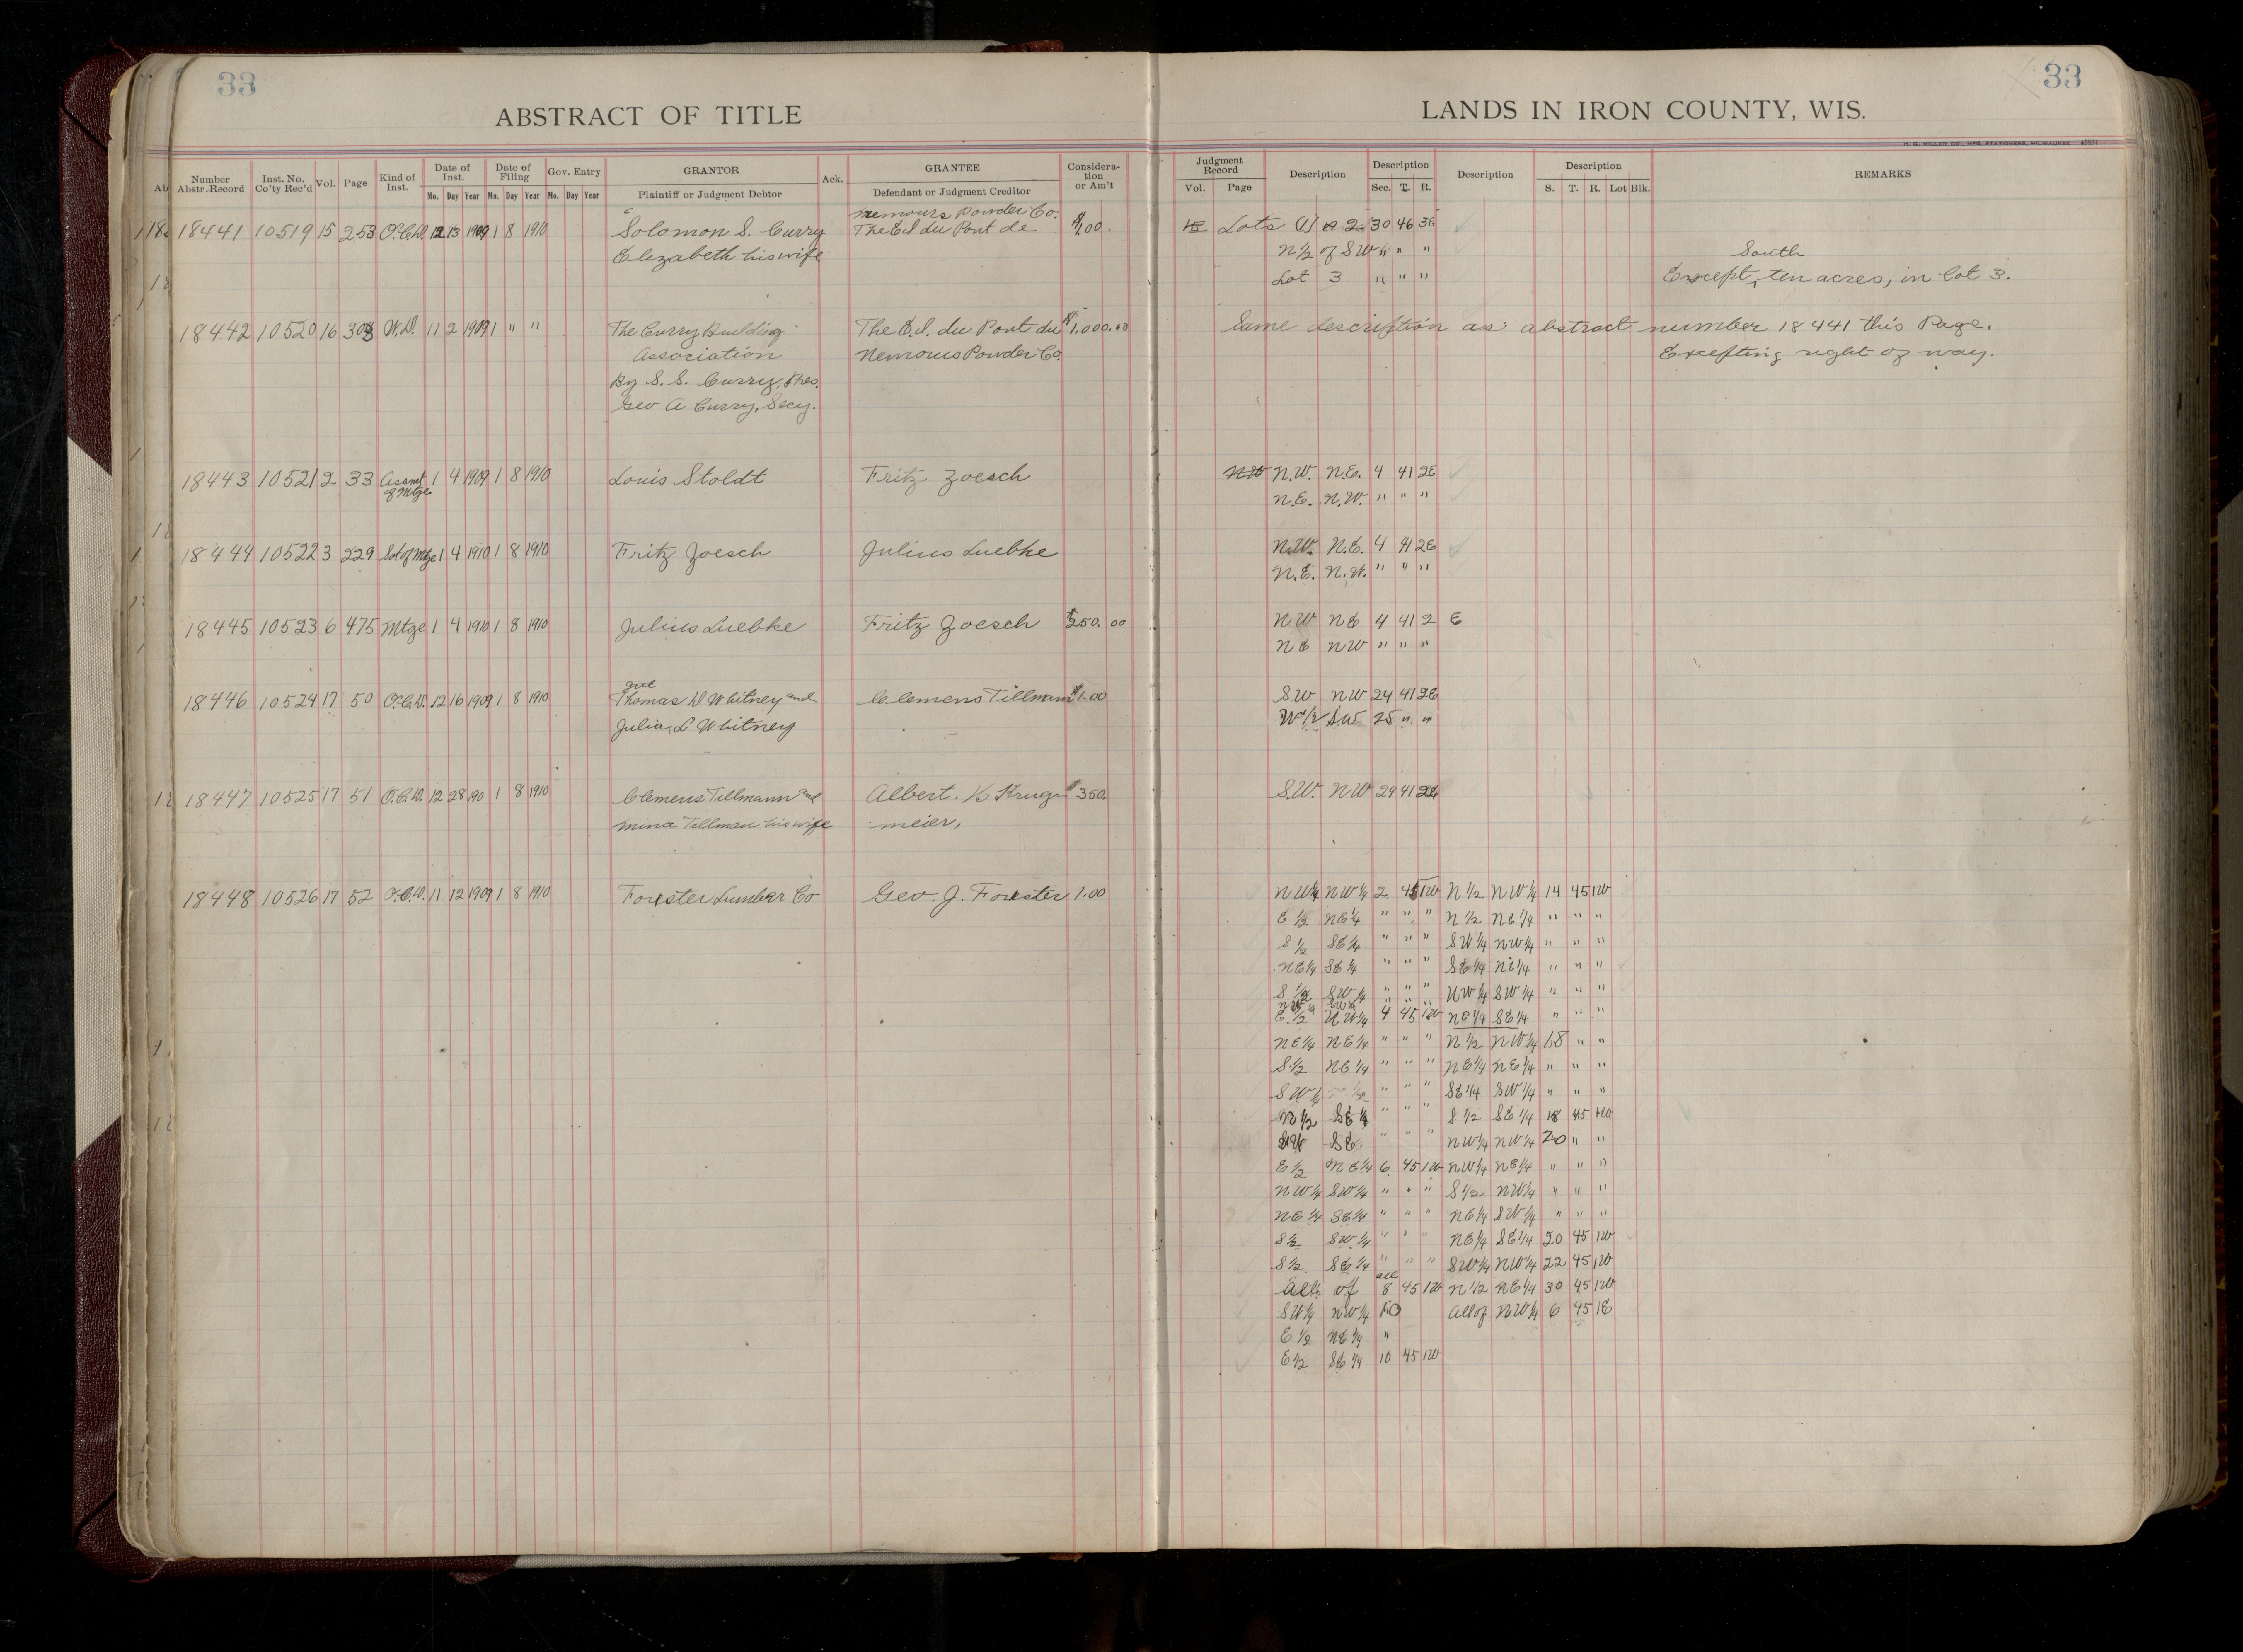 33
33
ABSTRACT OF TITLE
LANDS IN IRON COUNTY, WIS.
H. G. MILLER CO., MFG. STATIONERS, MILWAUKEE
Number Abstr. Record Inst. No. Co'ty Rec'd Vol. Page Kind of Inst. Date of Inst. Mo. Day Year Date of Filing Mo. Day Year Gov. Entry Mo. Day Year GRANTOR Plaintiff or Judgment Debtor Ack. GRANTEE Defendant or Judgment Creditor Considera-tion or Am't
Judgment Record Vol. Page Description Description Sec. T. R. Description Description S. T. R. Lot Blk. REMARKS
Nemours Powder Co.
18441 10519 15 253 Q.C.D. 12 13 1909 1 8 1910 Solomon S. Curry The E I du Pont de $1.00. Lots (1) & 2 30 46 3E
Elizabeth his wife N 1/2 of SW " " " South
Lot 3 " " " Except, ten acres, in Lot 3.
18442 10520 16 303 W.D. 11 2 1909 1 " " The Curry Building The E. I. du Pont du $1,000.00 Same description as abstract number 18441 this Page.
Association Nemours Powder Co. Excepting right of way.
By S. S. Curry, Pres.
Geo A Curry, Secy.
18443 10521 2 33 Assmt of Mtge. 1 4 1909 1 8 1910 Louis Stoldt Fritz Zoesch N.W. N.E. 4 41 2E
N.E. N.W. " " "
18444 10522 3 229 Sat of Mtge 1 4 1910 1 8 1910 Fritz Zoesch Julius Luebke N.W. N.E. 4 41 2E
N.E. N.W. " " "
18445 10523 6 475 Mtge 1 4 1910 1 8 1910 Julius Luebke Fritz Zoesch $250.00 NW NE 4 41 2 E
NE NW " " "
18446 10524 17 50 Q.C.D. 12 16 1909 1 8 1910 Thomas W Whitney and Clemens Tillmann $1.00 SW NW 24 41 2E
Julia L Whitney W 1/2 SW 25 " "
18447 10525 17 51 Q.C.D. 12 28 90 1 8 1910 Clemens Tillmann and Albert. K Krug- $350. S.W. NW 24 41 2E
Mina Tillman his wife meier,
18448 10526 17 52 Q.C.D. 11 12 1909 1 8 1910 Forster Lumber Co Geo. J. Forster 1.00 NW1/4 NW1/4 2 45 1W N 1/2 NW1/4 14 45 1W
E 1/2 NE1/4 " " " N 1/2 NE1/4 " " "
S 1/2 SE1/4 " " " SW1/4 NW1/4 " " "
NE1/4 SE1/4 " " " SE1/4 NE1/4 " " "
S 1/2 SW1/4 " " " NW1/4 SW1/4 " " "
NW1/4 SW1/4 " " "
E 1/2 NW1/4 4 45 1W NE1/4 SE1/4 " " "
NE1/4 NE1/4 " " " N 1/2 NW1/4 18 " "
S 1/2 NE1/4 " " " NE1/4 NE1/4 " " "
SW1/4 " " " SE1/4 SW1/4 " " "
N 1/2 SE1/4 " " " S 1/2 SE1/4 18 45 1W
SW SE " " " NW1/4 NW1/4 20 " "
E 1/2 NE1/4 6 45 1W NW1/4 NE1/4 " " "
NW1/4 SW1/4 " " " S 1/2 NW1/4 " " "
NE1/4 SE1/4 " " " NE1/4 SW1/4 " " "
S 1/2 SW1/4 " " " NE1/4 SE1/4 20 45 1W
S 1/2 SE1/4 " " " SW1/4 NW1/4 22 45 1W
all
All of 8 45 1W N 1/2 NE1/4 30 45 1W
SW1/4 NW1/4 10 All of NW1/4 6 45 1E
E 1/2 NE1/4 "
E 1/2 SE1/4 10 45 1W